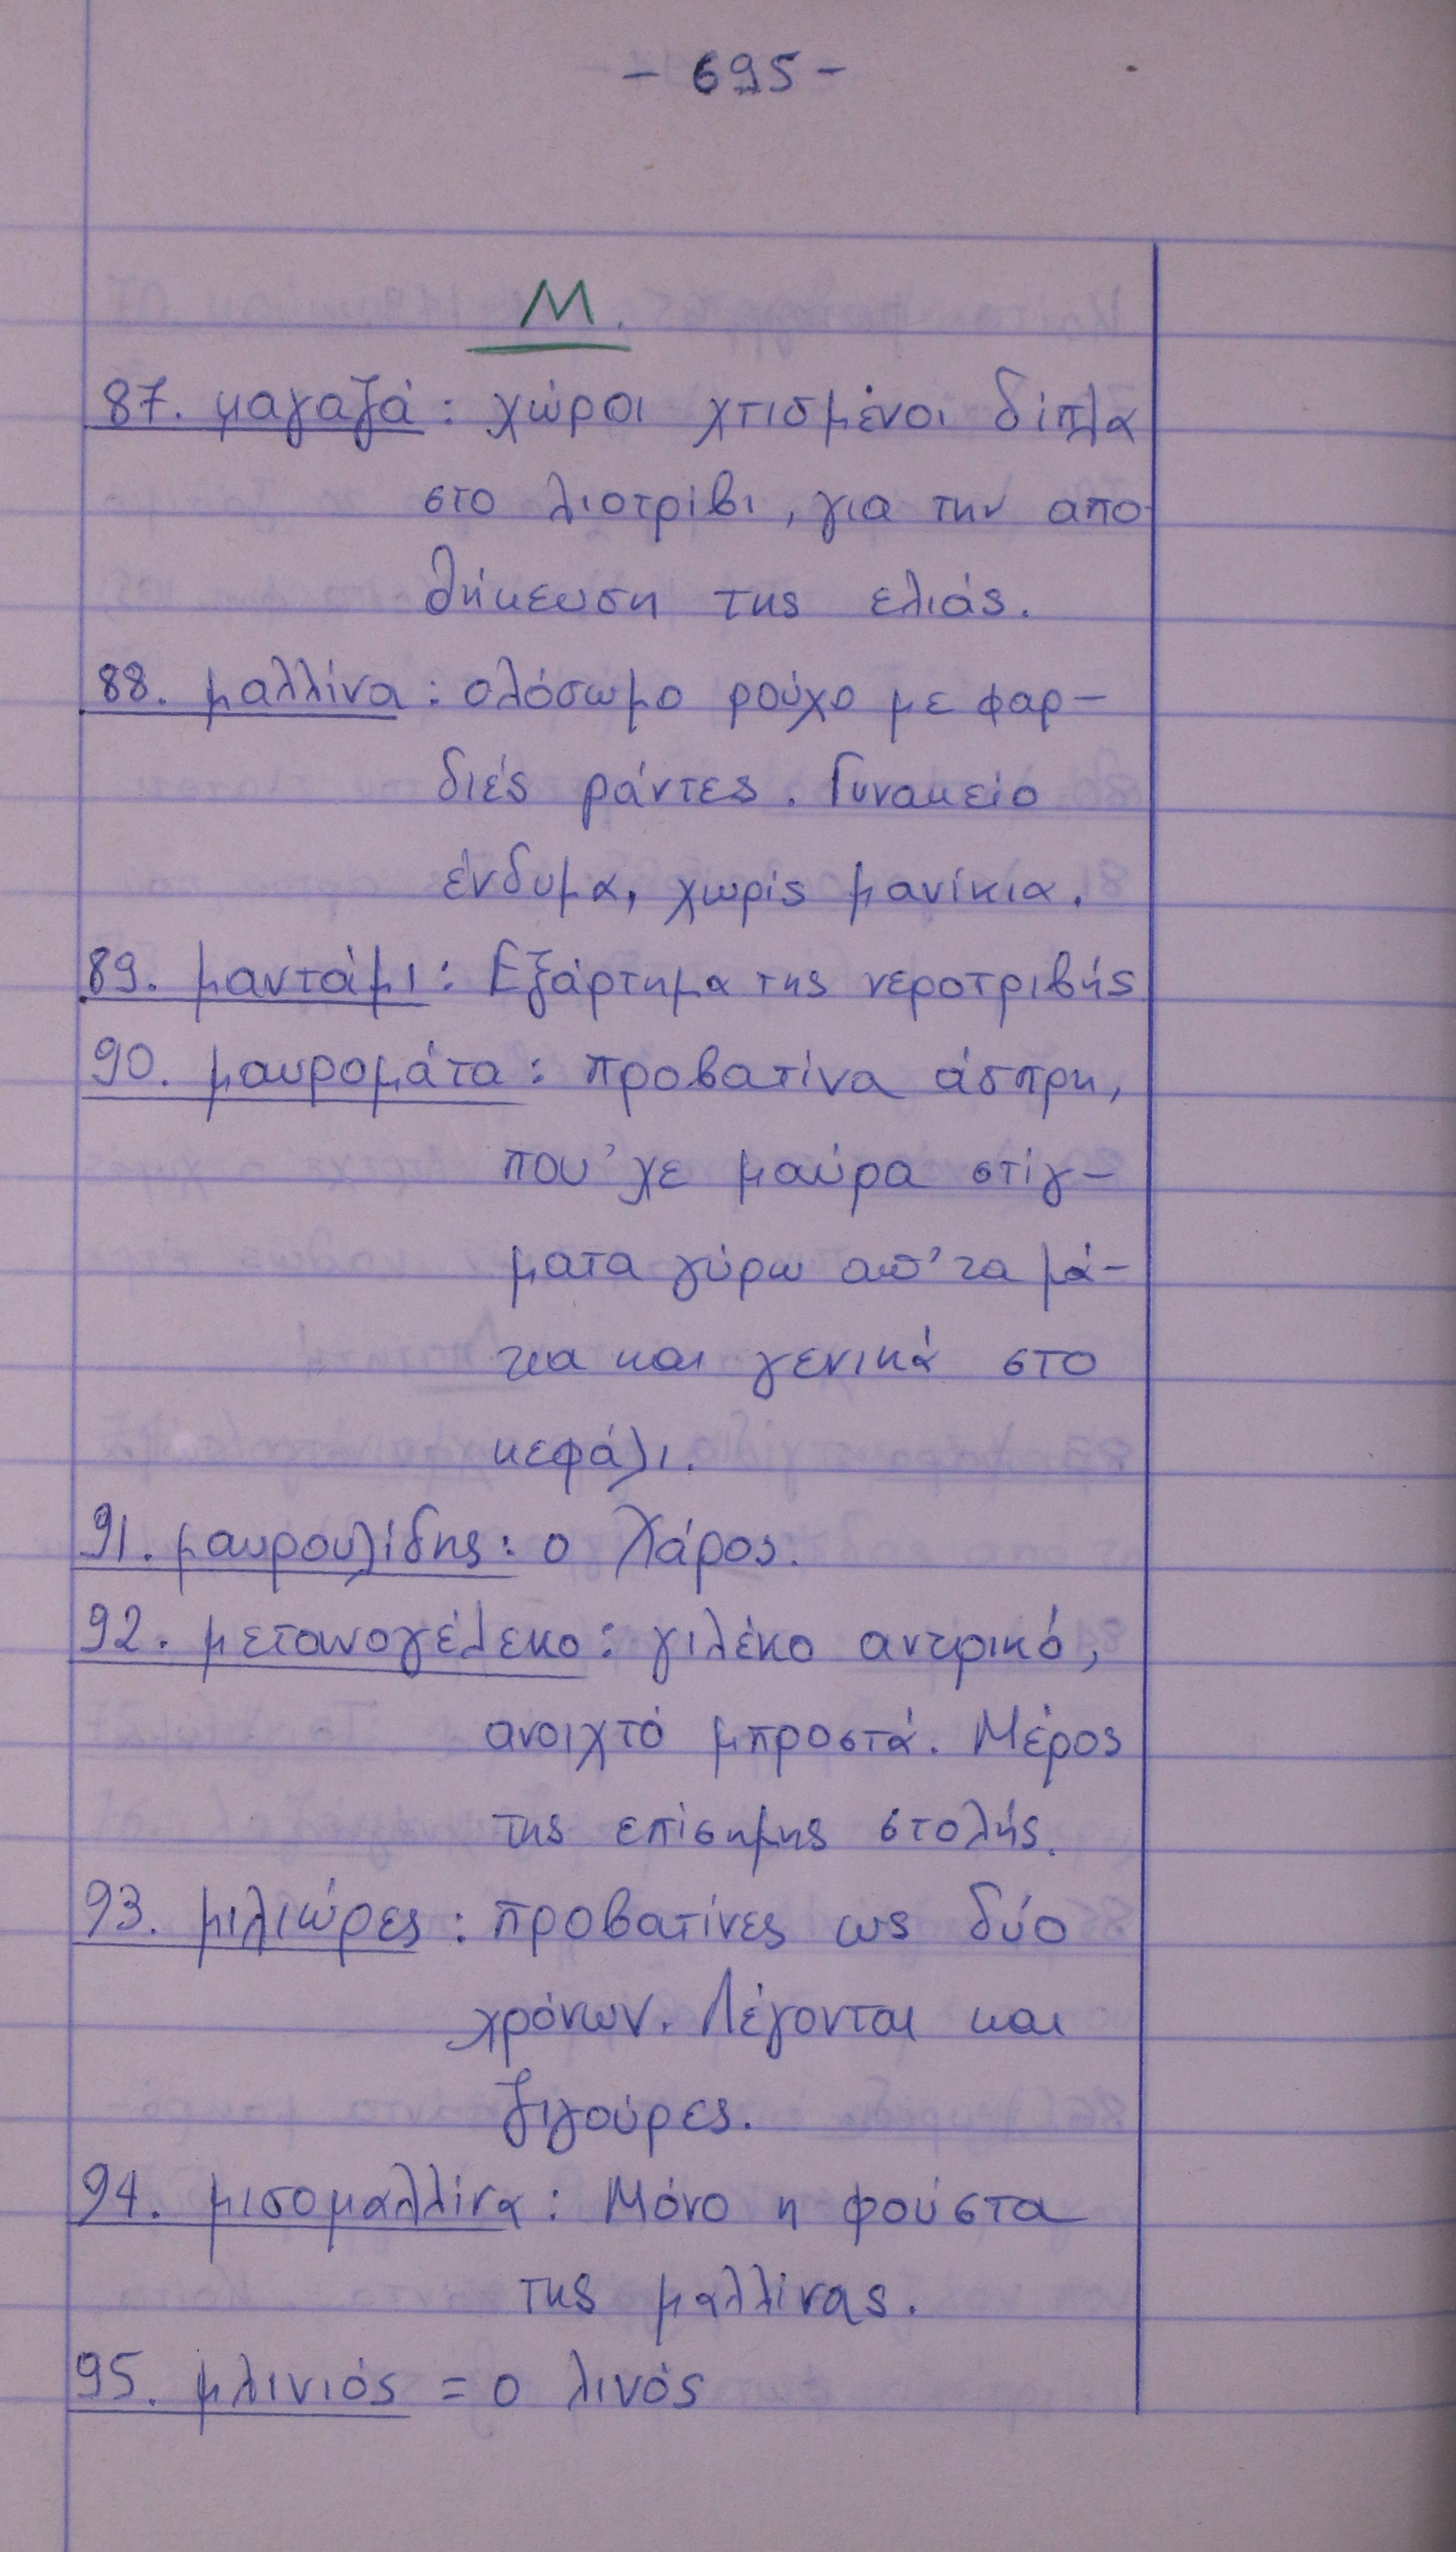 - 695 -
Μ.
87. μαγαζά : χώροι χτισμένοι δίπλα
στο λιοτρίβι, για την απο-
θήκευση της ελιάς.
88. μαλλίνα : ολόσωμο ρούχο με φαρ-
διές ράντες. Γυναικείο
ένδυμα, χωρίς μανίκια.
89. μαντάμι : Εξάρτημα της νεροτριβής
90. μαυρομάτα : προβατίνα άσπρη,
που 'χε μαύρα στίγ-
ματα γύρω απ' τα μά-
τια και γενικά στο
κεφάλι.
91. μαυρουλίδης : ο Χάρος.
92. μετανογέλεκο : γιλέκο αντρικό,
ανοιχτό μπροστά. Μέρος
της επίσημης στολής.
93. μιλιώρες : προβατίνες ως δύο
χρόνων. Λέγονται και
ζιγούρες.
94. μισομαλλίνα : Μόνο η φούστα
της μαλλίνας.
95. μλινιός = ο λινός